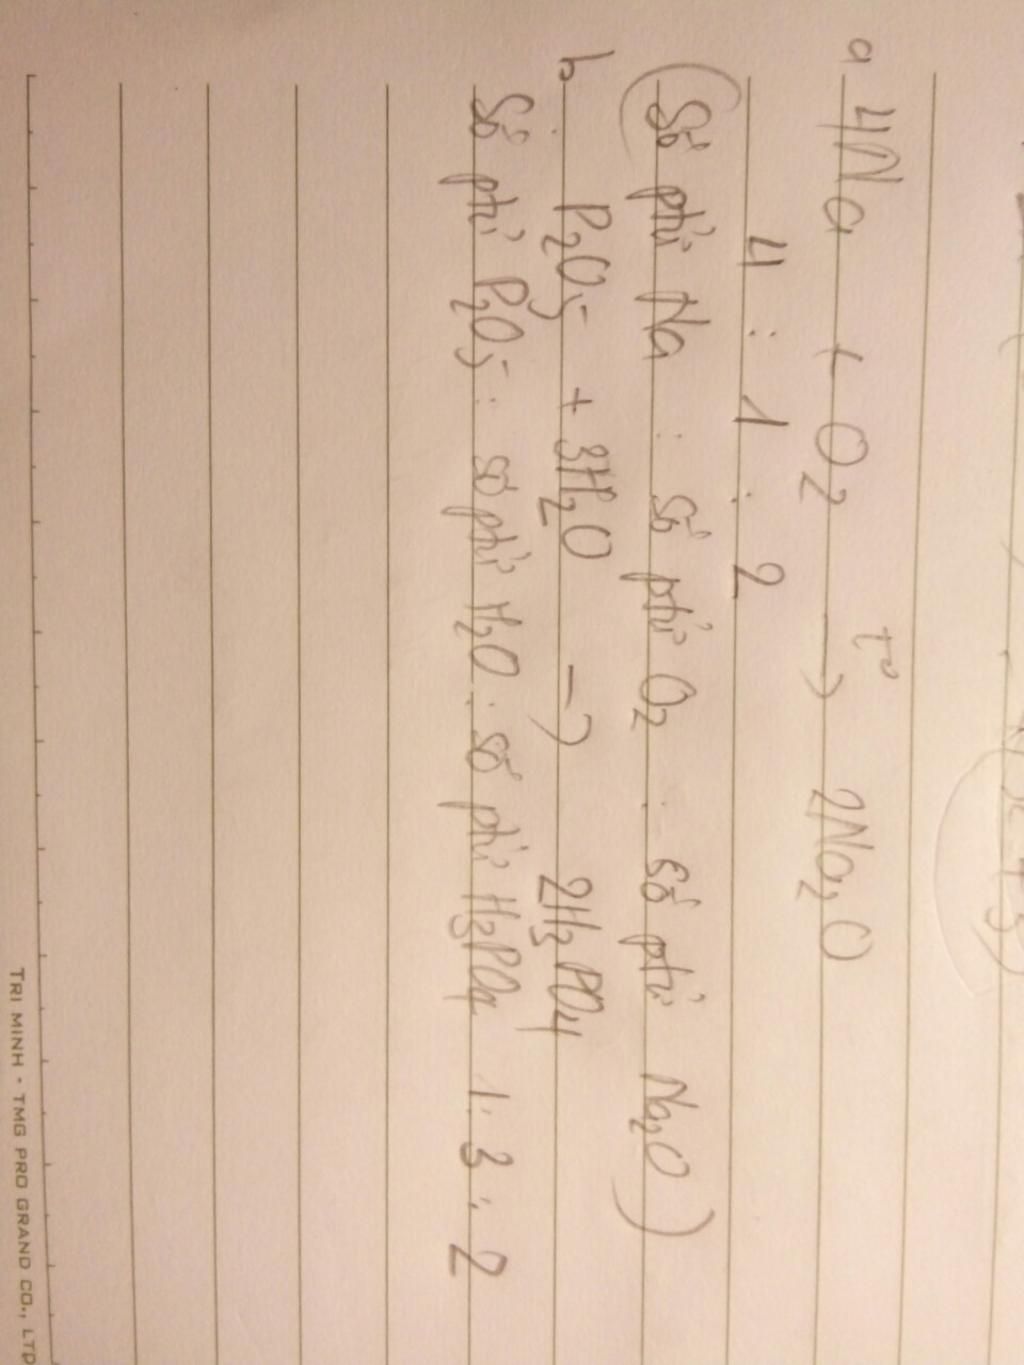 a 4Na + O2 t° → 2Na2O
4 : 1 : 2
(Số ptử Na : số ptử O2 : số ptử Na2O)
b. P2O5 + 3H2O → 2H3PO4
Số ptử P2O5 : số ptử H2O : số ptử H3PO4 1 : 3 : 2
TRI MINH - TMG PRO GRAND CO., LTD